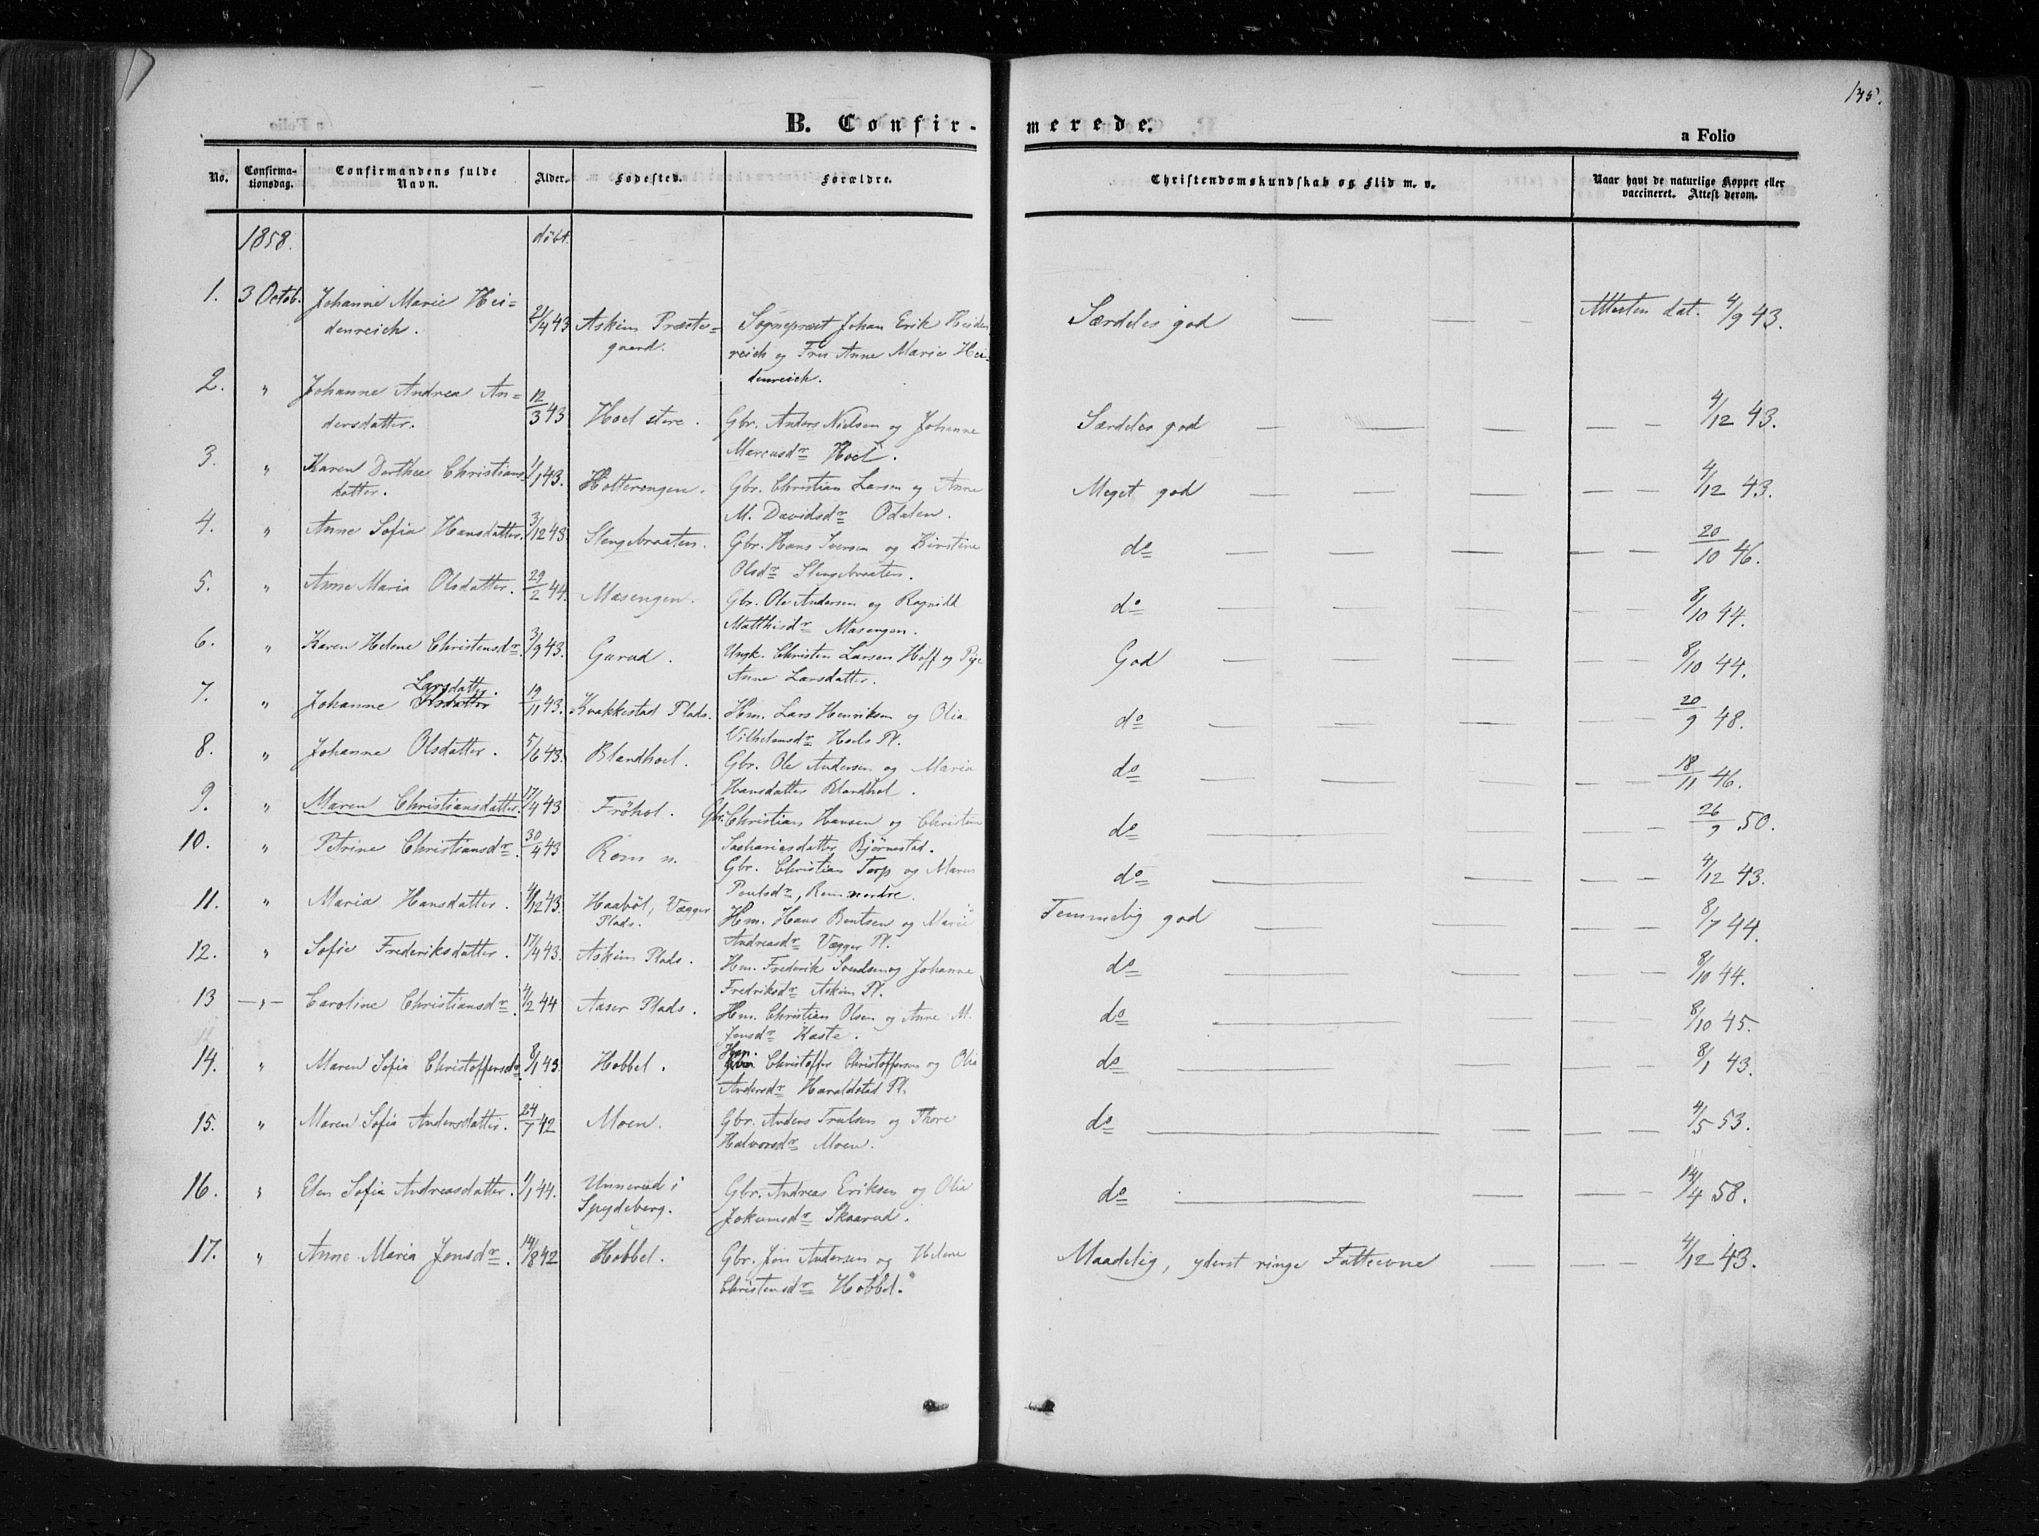 135.
B. Confir-merede.
a Folio
No. Confirma-tionsdag. Confirmandens fulde Navn. Alder. Fødested. Forældre. Christendomskundskab og Flid m. v. Naar havt de naturlige Kopper eller vaccineret. Attest derom.
1858. døbt.
1. 3 Octob. Johanne Marie Hei- 21/4 43 Askim Præste- Sognepræst Johan Erik Heiden Særdeles god — — — Attesten dat. 4/9 43.
denreich. gaard. reich og Fru Anne Marie Hei-
denreich.
2. " Johanne Andrea An- 12/3 43 Hoel store. Gbr. Anders Nielsen og Johanne Særdeles god — — — — — 4/12 43.
dersdatter. Marcusdr Hoel.
3. " Karen Dorthea Christians 1/1 43. Holterengen. Gbr. Christian Larsen og Anne Meget god — — — — — 4/12 43.
datter. M. Davidsdr Odalen.
4. " Anne Sofia Hansdatter. 3/12 43. Stengebraaten. Gbr. Hans Iversen og Kirstine do — — — — — 20/10 46.
Olsdr Stengebraaten.
5. " Anne Maria Olsdatter. 29/2 44. Masengen. Gbr. Ole Andersen og Ragnild do — — — — — 8/10 44.
Matthisdr Masengen.
6. " Karen Helene Christensdr. 3/9 43. Garud. Ungk. Christen Larsen Hoff og Pige God — — — — — 8/10 44.
Anne Larsdatter.
Larsdatter.
7. " Johanne 19/11 43. Kvakkestad Plads. Hm. Lars Henriksen og Olia do — — — — — 20/9 48.
Vilhelmsdr Hoels Pl.
8. " Johanne Olsdatter. 5/6 43. Blandhoel. Gbr. Ole Andersen og Maria do — — — — — 18/11 46.
Hansdatter Blandhol.
9. " Maren Christiansdatter. 17/4 43 Frøhol. Gbr. Christian Hansen og Christine do — — — 26/9 50.
Sachariasdatter Bjørnestad.
10. " Petrine Christiansdr. 30/4 43 Rom n. Gbr. Christian Torp og Maren do — — — — 4/12 43.
Poulsdr, Rom nordre.
11. " Maria Hansdatter. 4/12 43. Haabøl, Vægger Hm. Hans Bentsen og Marie Temmelig god — — — — 8/7 44.
Plads. Andreasdr Vægger Pl.
12. " Sofie Frederiksdatter. 17/4 43. Askim Plads. Hm. Frederik Svendsen og Johanne do — — — — 8/10 44.
Fredriksdr Askim Pl.
13 — " — Caroline Christiansdr. 4/2 44 Aaser Plads. Hm. Christian Olsen og Anne M. do — — — — 8/10 45.
Jensdr Kaste.
14. " Maren Sofia Christoffersdr. 8/1 43. Hobbel. Hm. Christoffer Christoffersen og Olia do — — — — 8/1 43.
Andersdr Haraldstad Pl.
15. " Maren Sofia Andersdatter. 24/7 42 Moen. Gbr. Anders Trulsen og Thore do — — — — 4/5 53.
Halvorsdr Moen.
16. " Elen Sofia Andreasdatter. 1/1 44. Unnerud i Gbr. Andreas Eriksen og Olia do — — — — 14/4 58.
Spydeberg. Jokumsdr Skaarud.
17. " Anne Maria Jonsdr. 14/8 42 Hobbel. Gbr. Jon Andersen og Helene Maadelig, yderst ringe Fatteevne — — — — 4/12 43.
Christensdr Hobbel.